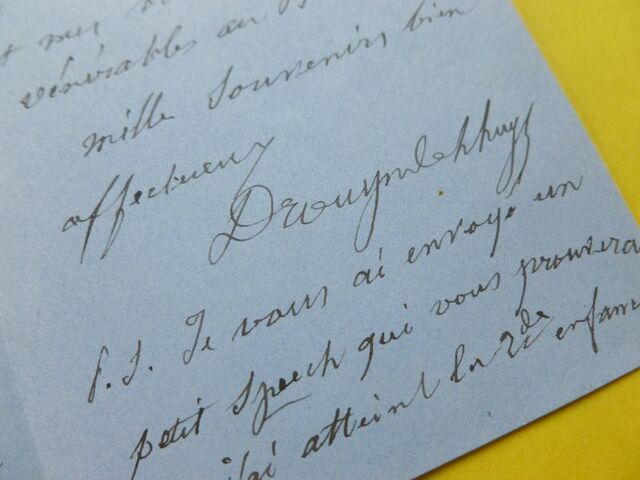 mes
vénérables au
mille souvenirs bien
affectueux
Drouyn de Lhuys
P.S. Je vous ai envoyé un
petit speech qui vous prouvera
j'ai atteint la 2de enfance